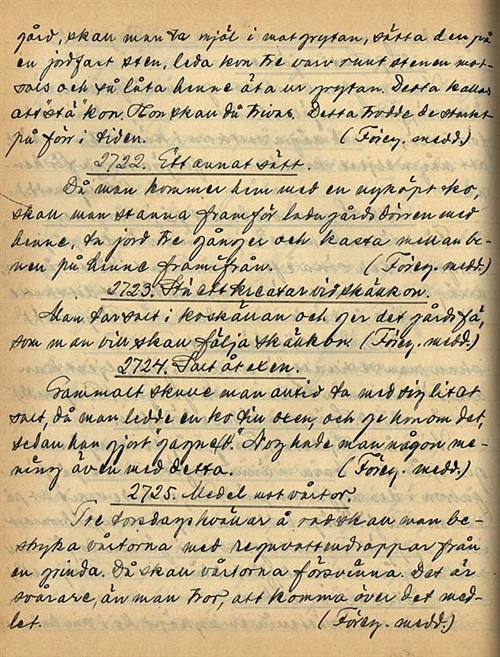 gård, skall man ta mjöl i matgrytan, sätta den på
en jordfast sten, leda kon tre varv runt stenen mot-
sols och så låta henne äta ur grytan. Detta kallas
att "stä" kon. Hon skall då trivas. Detta trodde de starkt
på förr i tiden. (Föreg. medd.)
2722. Ett annat sätt.
Då man kommer hem med en nyköpt ko,
skall man stanna framför ladugårdsdörren med
henne, ta jord tre gånger och kasta mellan be-
nen på henne framifrån. (Föreg. medd.)
2723. Stä ett kreatur vid skällkon.
Man tar salt i koskällan och ger det gårdsfä,
som man vill skall följa skällkon. (Föreg. medd.)
2724. Salt åt oxen.
Gammalt skulle man alltid ta med sig litet
salt, då man ledde en ko till oxen, och ge honom det,
sedan han gjort "gagnelt". Nog hade man någon me-
ning även med detta. (Föreg. medd.)
2725. Medel mot vårtor.
Tre torsdagskvällar å rad skall man be-
stryka vårtorna med regnvattendroppar från
en grinda. Då skall vårtorna försvinna. Det är
svårare, än man tror, att komma över det med-
let. (Föreg. medd.)